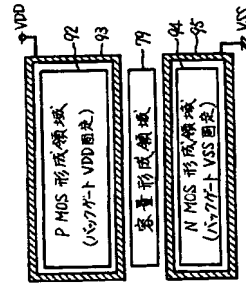 VDD
92
93
P MOS 形成領域
(バックゲート VDD 固定)
79
容量形成領域
94
95
N MOS 形成領域
(バックゲート VSS 固定)
VSS